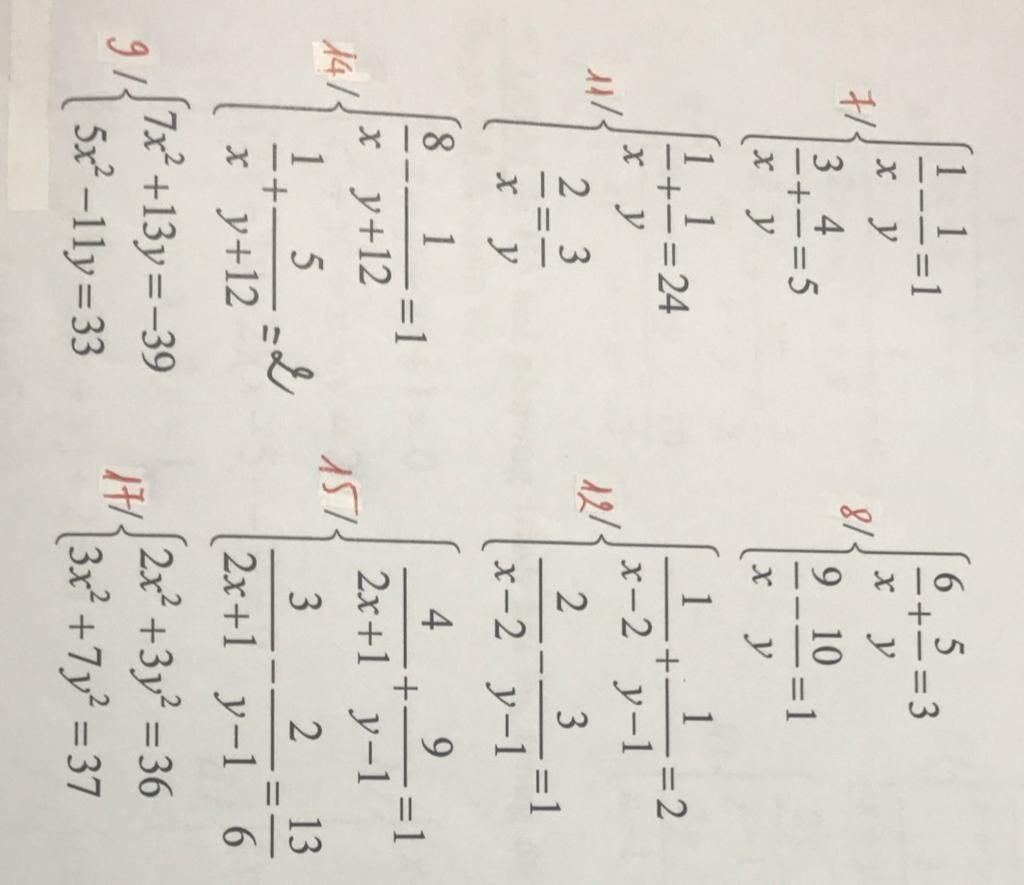 7/ { 1/x - 1/y = 1
3/x + 4/y = 5
8/ { 6/x + 5/y = 3
9/x - 10/y = 1
11/ { 1/x + 1/y = 24
2/x = 3/y
12/ { 1/(x-2) + 1/(y-1) = 2
2/(x-2) - 3/(y-1) = 1
14/ { 8/x - 1/(y+12) = 1
1/x + 5/(y+12) = 2
15/ { 4/(2x+1) + 9/(y-1) = 1
3/(2x+1) - 2/(y-1) = 13/6
9/ { 7x² + 13y = -39
5x² - 11y = 33
17/ { 2x² + 3y² = 36
3x² + 7y² = 37